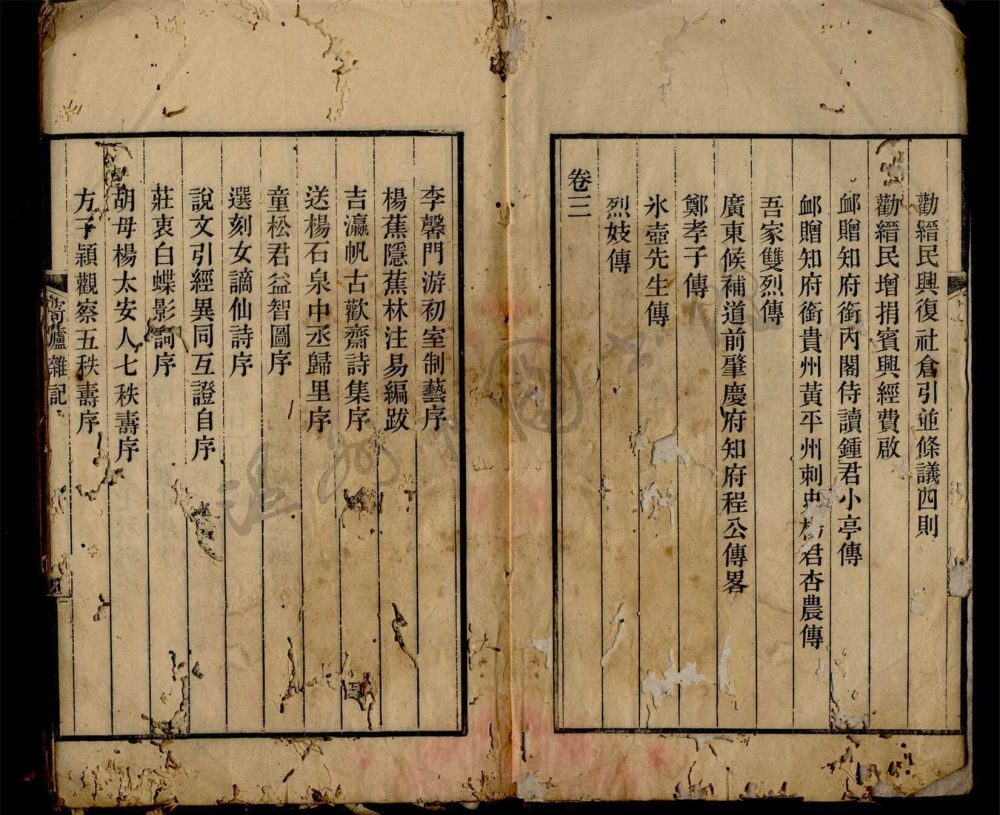 勸縉民興復社倉引並條議四則
勸縉民增捐賓興經費啟
䘏贈知府銜內閣侍讀鍾君小亭傳
䘏贈知府銜貴州黃平州刺史楊君杏農傳
吾家雙烈傳
廣東候補道前肇慶府知府程公傳畧
鄭孝子傳
氷壺先生傳
烈妓傳
卷三
李馨門游初室制藝序
楊蕉隱蕉林注易編跋
吉瀛帆古歡齋詩集序
送楊石泉中丞歸里序
童松君益智圖序
選刻女謫仙詩序
說文引經異同互證自序
莊衷白蝶影詞序
胡母楊太安人七秩壽序
方子穎觀察五秩壽序
廬雜記